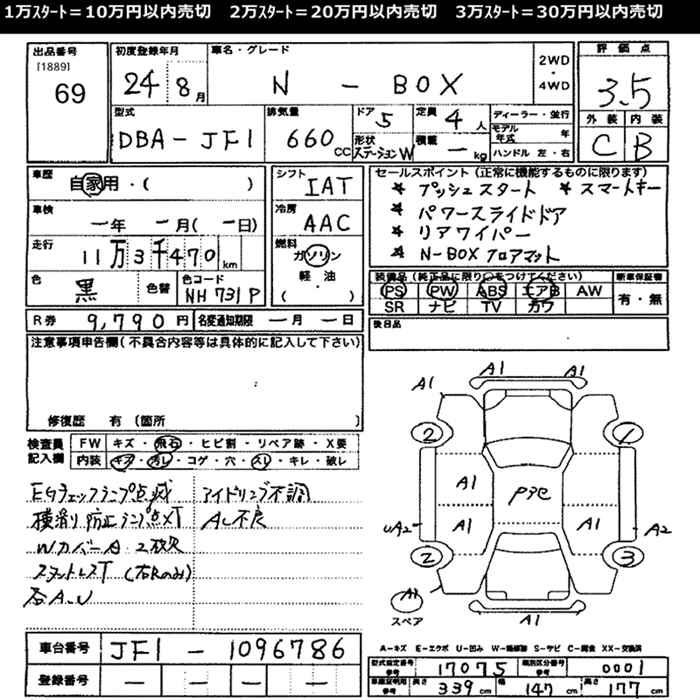 1万ｽﾀｰﾄ＝10万円以内売切　2万ｽﾀｰﾄ＝20万円以内売切　3万ｽﾀｰﾄ＝30万円以内売切
出品番号 [1889] 69
初度登録年月 24 8月
車名・グレード N - BOX
2WD・4WD
評価点 3.5
型式 DBA-JF1
排気量 660 CC
ドア 5
形状 ステーションW
定員 4人
積載 ー kg
ディーラー・並行
モデル年式 年
ハンドル 左・右
外装 C
内装 B
車歴 自家用・( )
車検 ー年 ー月(ー日)
走行 11万3千470km
色 黒 色替 色コード NH731P
シフト IAT
冷房 AAC
燃料 ガソリン 軽・油 ( )
セールスポイント(正常に機能するものに限ります)
★ プッシュスタート ★ スマートキー
★ パワースライドドア
★ リアワイパー
★ N-BOXフロアマット
装備品(純正品に限り○をつけてください) 新車保証書
PS PW ABS エアB AW 有・無
SR ナビ TV カワ
後日品
R券 9,790円 名変通知期限 ー月ー日
注意事項申告欄(不具合内容等は具体的に記入して下さい)
修復歴 有(箇所 )
検査員記入欄
FW キズ・飛石・ヒビ割・リペア跡・X要
内装 キズ・汚レ・コゲ・穴・スレ・キレ・破レ
EGチェックランプ点滅 アイドリング不調
横滑り防止ランプ点灯 AC不良
WカバーA・2枚欠
A1 A1 A1 A1
2 1
A1 P3色
A1 A1
UA2 A2
2 3
A1 A1
スペア
A-キズ E-エクボ U-凹み W-補修跡 S-サビ C-腐食 XX-交換済
車台番号 JF1 - 1096786
登録番号 ー ー ー ー
型式指定番号 参考 17075 類別区分番号 参考 0001
車検証記載 参考 長さ 339cm 幅 147cm 高さ 177cm